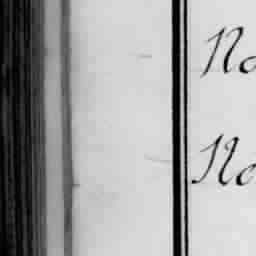 No
No